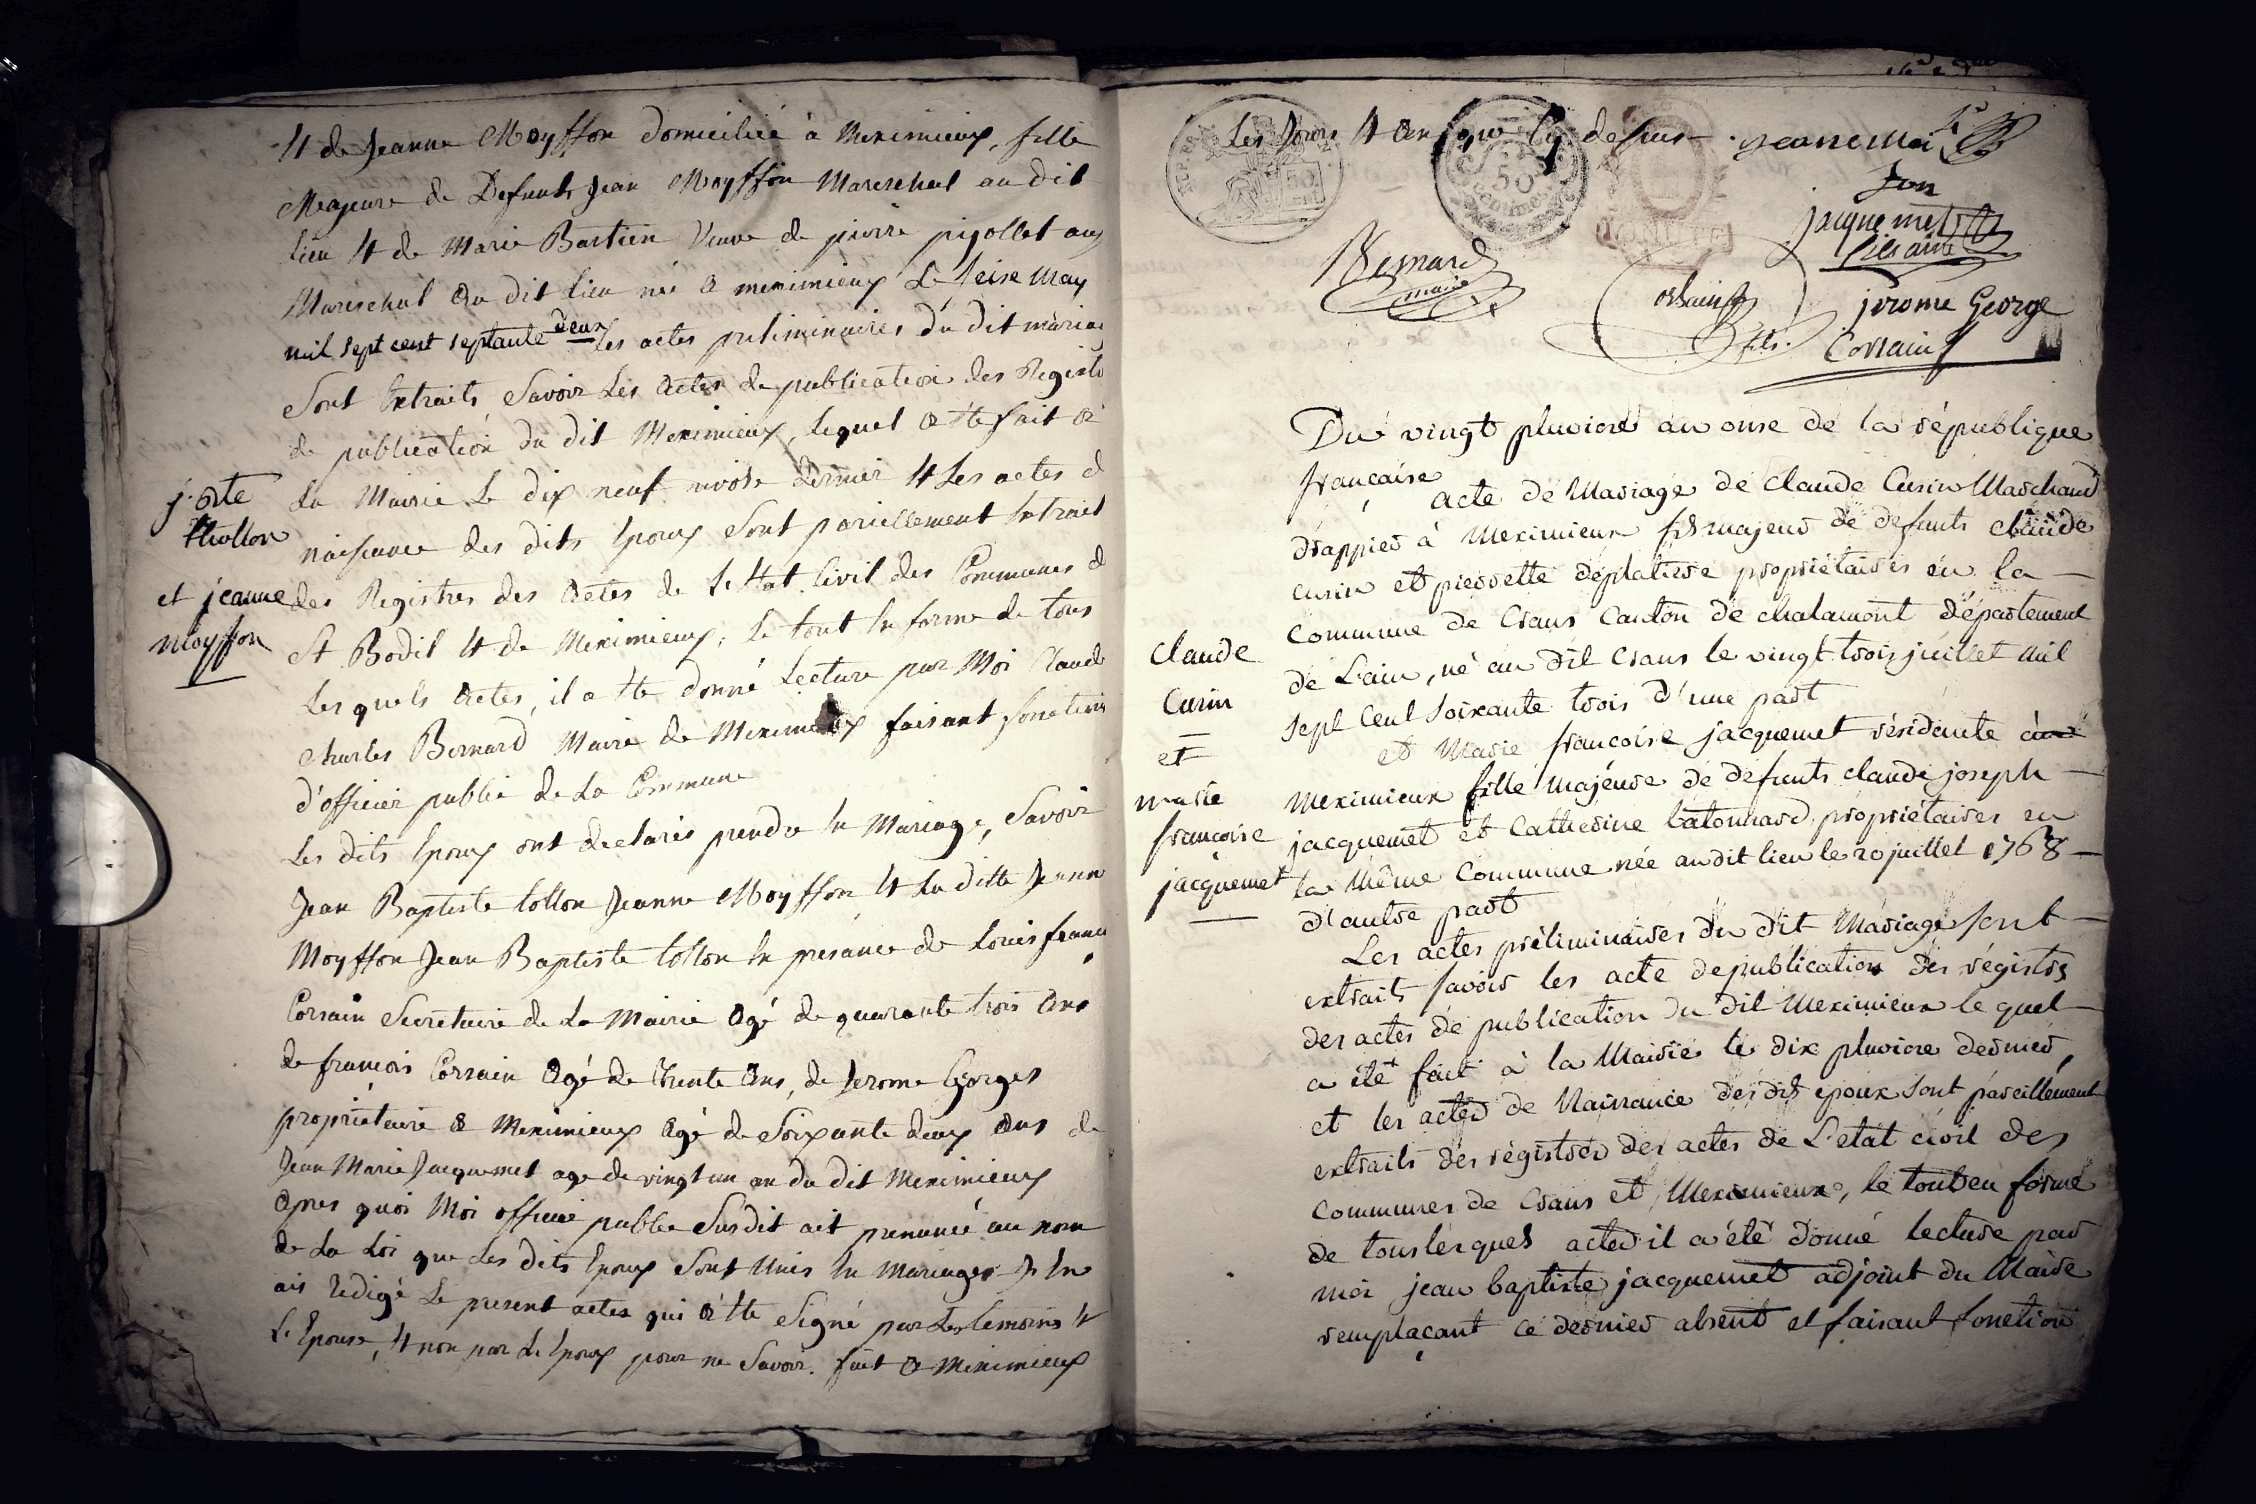 et de Jeanne Moyffon domiciliée à Meximieux, fille
Majeure de Defunts Jean Moyffon Mareschal au dit
lieu et de Marie Bartien Veuve de pierre pigollet aussy
Mareschal Au dit lieu née a meximieux Le seise May
mil sept cent septante deux les actes preliminaires du dit mariage
Sont Extraits Savoir Les Actes de publication des Registre
de publication du dit Meximieux, lequel a ete fait a
La Mairie Le dix neuf nivose dernier et Les actes d
naissance des dits Epoux Sont pariellement Extrait
des Registres des Actes de L'Etat Civil des Communes d
St Bodil et de Meximieux; Le tout En forme de tous
Les quels Actes, il a ete donné Lecture par Moi Claude
Charles Bernard Maire de Meximieux faisant fonctions
d'officier public de La Commune
Les dits Epoux ont declarés prendre En Mariage, Savoir
Jean Baptiste tollon Jeanne Moyffon et La ditte Jeanne
Moyffon Jean Baptiste tollon En presance de Louis franc
Corsain Secretaire de La Mairie Agé de quarante trois Ans
de francois Corsain Agé de Trente Ans, de Jerome Georges
propriétaire a Meximieux Agé de Soixante deux Ans de
Jean Marie Jacquemet age de vingt un an du dit Meximieux
Apres quoi Moi officié public Susdit ait prenoncé au nom
de La Loi que Les dits Epoux Sont Unis En Mariage
ais Redigé Le present actes qui a ete Signé par Les temoins et
L'Epouse, et non par Le Epoux pour ne Savoir. fait a Meximieux
j. bte
thollon
et jeanne
moyffon
Les Jours et An que Cy dessus jeanne Moi
fon
jacquemet
fils ainé
Bernard
maire
Corsain
fils
jerome George
Corsain
Du vingt pluviose an onse de la république
française
acte de Mariage de Claude Curin Marchand
drappier à Meximieux fils majeur de defunts claude
curin et pierrette deplatiere propriétaires en la
Commune de Crans Canton de chalamont département
de L'ain, né au dit Crans le vingt trois juillet mil
sept Cent Soixante trois d'une part
et Marie françoise jacquemet résidente
Meximieux fille Majeure de défunts claude joseph
jacquemet et Catherine batonnard propriétaires en
la Même Commune née audit lieu le 20 juillet 1768
d'autre part
Les actes préliminaires du dit Mariage sont
extraits savoir les acte de publication des régistres
des actes de publication du dit Meximieux le quel
a été fait à la Mairie le dix pluviose dernier,
et les actes de Naissance des dits epoux sont pareillement
extraits des régistres des actes de L'etat civil des
Communes de Crans et Meximieux, le tout en forme
de tous les quels actes il a été donné lecture par
moi jean baptiste jacquemet adjoint du Maire
remplaçant ce dernier absent et faisant fonction
Claude
Curin
et
marie
françoise
jacquemet